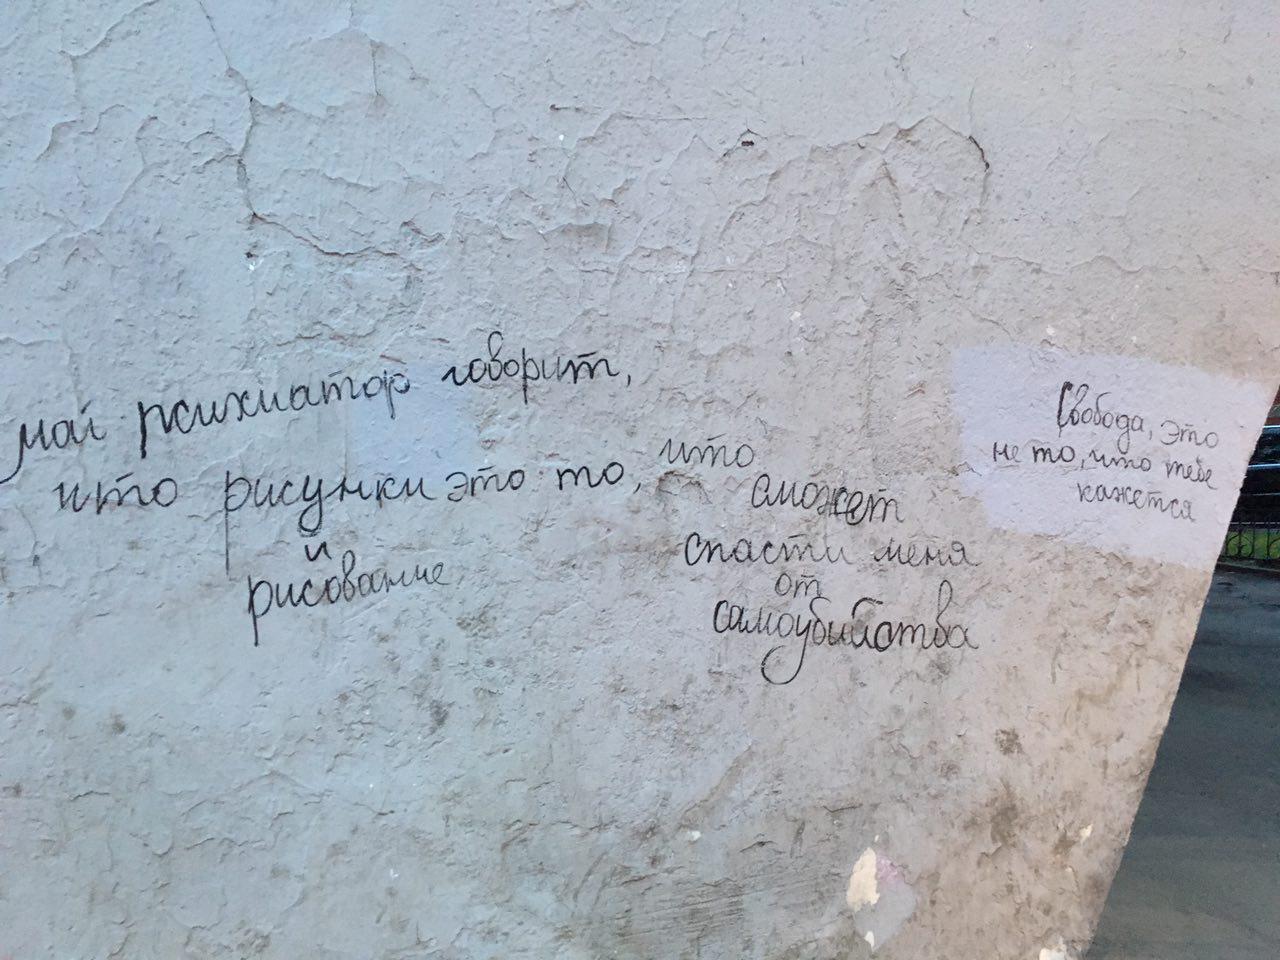 мой психиатор говорит,
что рисунки это то, что
и
рисование
сможет
спасти меня
от
самоубийства
Свобода, это
не то, что тебе
кажется